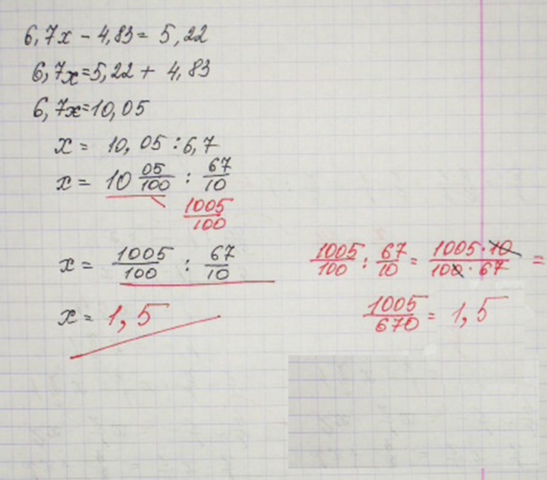 6,7x - 4,83 = 5,22
6,7x = 5,22 + 4,83
6,7x = 10,05
x = 10,05 : 6,7
x = 10 05/100 : 67/10
1005/100
x = 1005/100 : 67/10
x = 1,5
1005/100 : 67/10 = 1005·10/100·67 =
1005/670 = 1,5